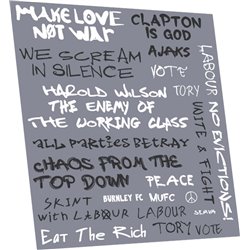 MAKE LOVE
NOT WAR
CLAPTON
IS GOD
WE SCREAM
IN SILENCE
AJAKS
VOTE
TORY
HAROLD WILSON
THE ENEMY OF
THE WORKING CLASS
ALL PARTIES BETRAY
CHAOS FROM THE
TOP DOWN
PEACE
BURNLEY FC
MUFC
SKINT
with LABOUR
LABOUR
Eat The Rich
TORY
VOTE
LABOUR
NO EVICTIONS!
UNITE & FIGHT